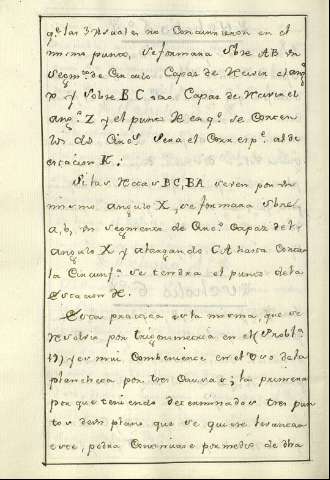 qe. las 3 visuales no Concurrieron en el
mismo punto, se formara sobre AB un
Segmto. de Circulo Capaz de recivir el angº.
y sobre BC otro Capaz de recivir el
angº. Z y el punto en qe. se Corten
los dos Circs. sera el Corresp.te al de
estacion K.
Si las rectas BC, BA se ven por un
mismo angulo X, se formara sobre
a, b, un segmento de Circº. Capaz del
angulo X y alargando CA hasta Cortar
la Circunfª. se tendra el punto de la
Estacion
Esta practica es la misma, que se
resolvio por trigonometria en el (Probl.
) y es mui Combeniente en el Uso de la
plancheta por tres Causas; la primera
por que teniendo determinados tres pun
tos de un plano que se quiere levantar
este, podra Continuarse por medio de otra